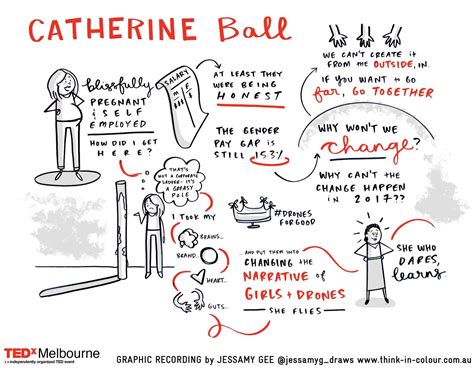 CATHERINE Ball
blissfully
PREGNANT
& SELF
EMPLOYED
HOW DID I GET
HERE?
SALARY
ME
AT LEAST THEY
WERE BEING
HONEST
THE GENDER
PAY GAP IS
STILL 15.3%
WE CAN'T CREATE IT
FROM THE OUTSIDE, IN.
IF YOU WANT to GO
far, GO TOGETHER
WHY WON'T WE
change?
WHY CAN'T THE
CHANGE HAPPEN
IN 2017??
THAT'S
NOT A CORPORATE
LADDER - IT'S
A GREASY
POLE
I TOOK MY
BRAINS...
BRAND...
HEART...
GUTS...
#DRONES
FOR GOOD
...AND PUT THEM INTO
CHANGING THE
NARRATIVE of
GIRLS + DRONES
SHE FLIES
SHE WHO
DARES,
learns
TEDxMelbourne
x = independently organized TED event
GRAPHIC RECORDING by JESSAMY GEE @jessamyg_draws www.think-in-colour.com.au